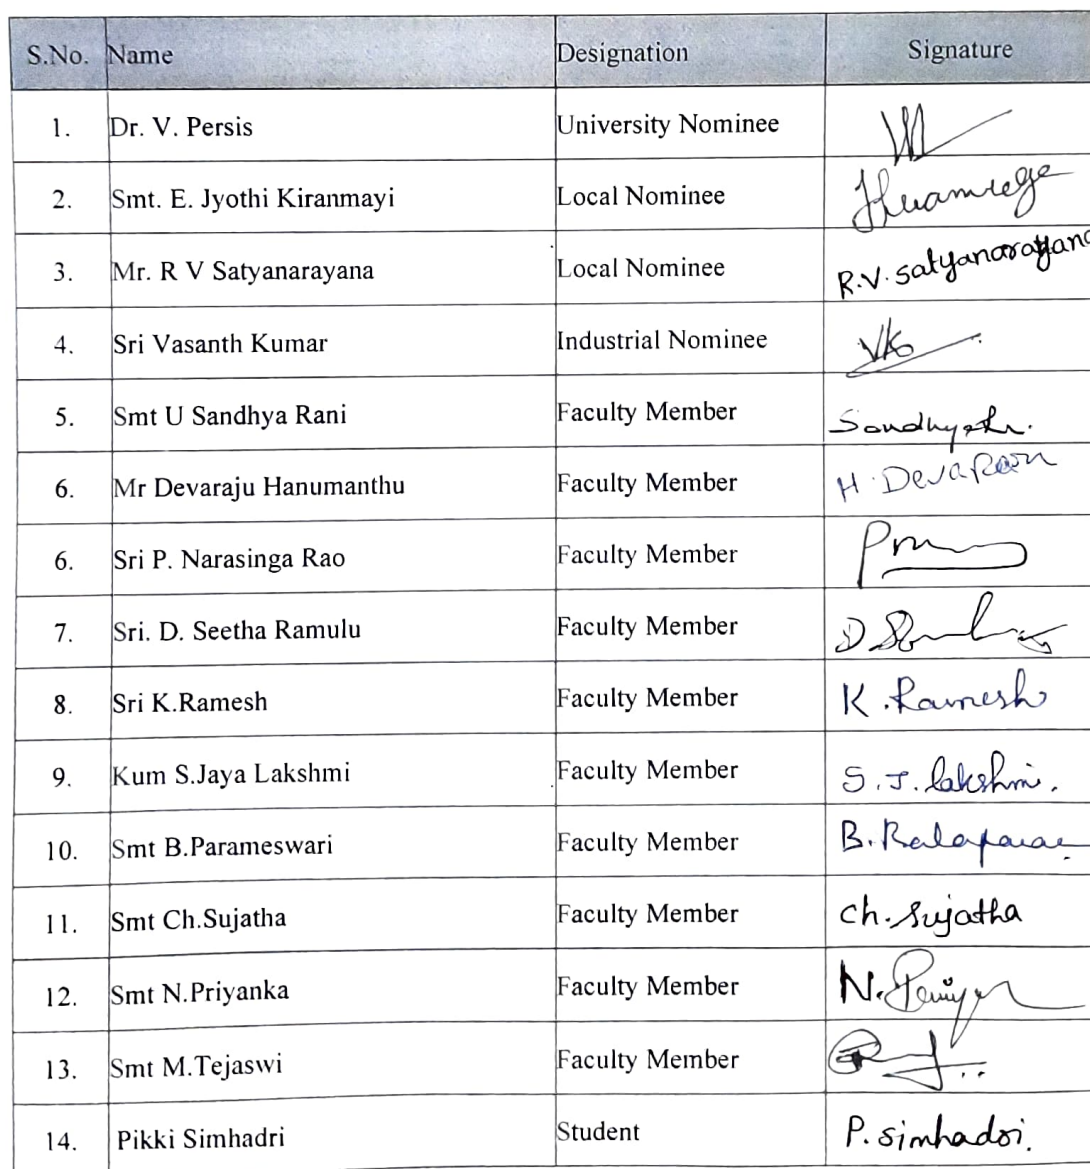 S.No. Name Designation Signature
1. Dr. V. Persis University Nominee
2. Smt. E. Jyothi Kiranmayi Local Nominee
3. Mr. R V Satyanarayana Local Nominee R.V. satyanarayana
4. Sri Vasanth Kumar Industrial Nominee VK
5. Smt U Sandhya Rani Faculty Member
6. Mr Devaraju Hanumanthu Faculty Member
6. Sri P. Narasinga Rao Faculty Member
7. Sri. D. Seetha Ramulu Faculty Member
8. Sri K.Ramesh Faculty Member K. Ramesh
9. Kum S.Jaya Lakshmi Faculty Member S. J. lakshmi.
10. Smt B.Parameswari Faculty Member
11. Smt Ch.Sujatha Faculty Member Ch. Sujatha
12. Smt N.Priyanka Faculty Member
13. Smt M.Tejaswi Faculty Member
14. Pikki Simhadri Student P. simhadri.